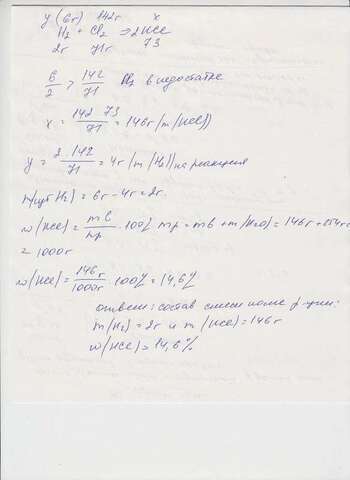 y (6г) 142г x
H₂ + Cl₂ ⇒ 2HCl
2г 71г 73
6/2 > 142/71 Cl₂ в недостатке
x = 142 73/71 = 146г (m (HCl))
y = 2·142/71 = 4г (m (H₂)) на реакцию
m(H₂) = 6г - 4г = 2г.
w(HCl) = mв/mр · 100% mр = mв + m(H₂O) = 146г + 854г
= 1000г
w(HCl) = 146г/1000г · 100% = 14,6%
ответ: состав смеси после р-ции:
m(H₂) = 2г и m (HCl) = 146г
w(HCl) = 14,6%